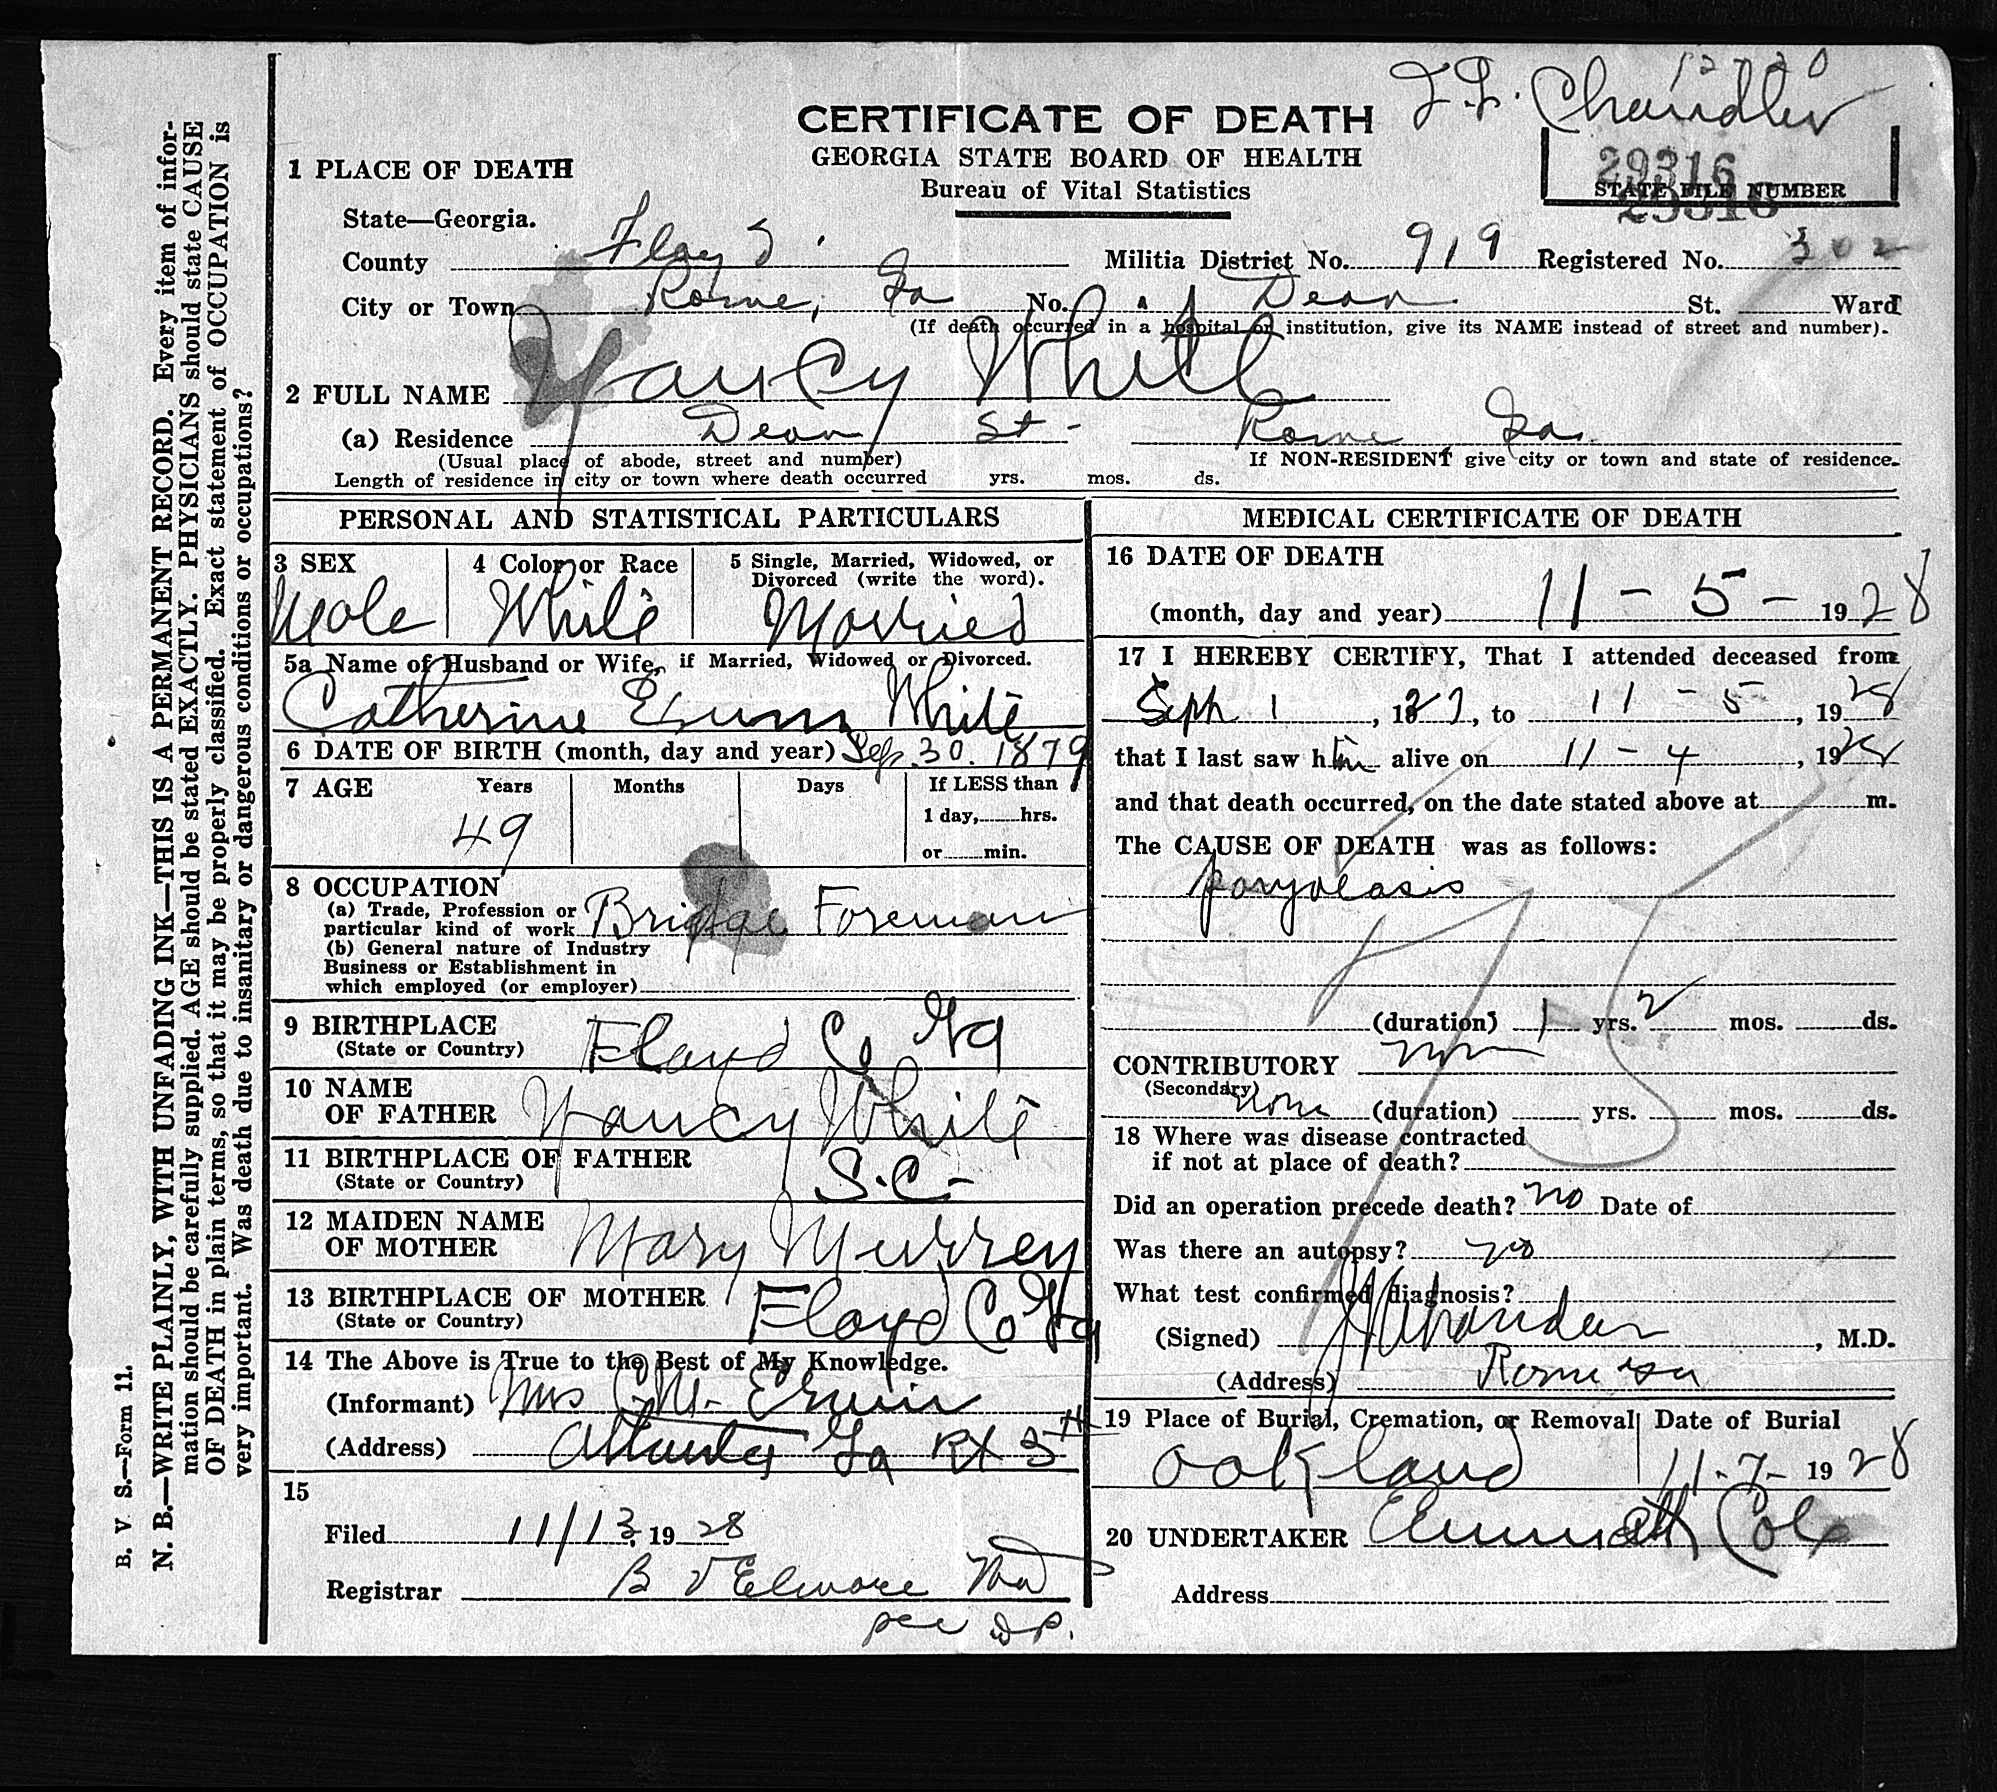 12-20
J. L. Chandler
CERTIFICATE OF DEATH
GEORGIA STATE BOARD OF HEALTH
Bureau of Vital Statistics
29316
STATE FILE NUMBER
29316
1 PLACE OF DEATH
State—Georgia.
County Floyd Militia District No. 919 Registered No. 302
City or Town Rome, Ga No. Dean St. Ward
(If death occurred in a hospital or institution, give its NAME instead of street and number).
2 FULL NAME Yancy White
(a) Residence Dean St- Rome Ga.
(Usual place of abode, street and number) If NON-RESIDENT give city or town and state of residence.
Length of residence in city or town where death occurred yrs. mos. ds.
PERSONAL AND STATISTICAL PARTICULARS
3 SEX 4 Color or Race 5 Single, Married, Widowed, or
Divorced (write the word).
Male White Married
5a Name of Husband or Wife, if Married, Widowed or Divorced.
Catherine White
6 DATE OF BIRTH (month, day and year) Sep. 30. 1879
7 AGE Years Months Days If LESS than
1 day, hrs.
49
or min.
8 OCCUPATION
(a) Trade, Profession or
particular kind of work Bridge Foreman
(b) General nature of Industry
Business or Establishment in
which employed (or employer)
9 BIRTHPLACE
(State or Country) Floyd Co Ga
10 NAME
OF FATHER Yancy White
11 BIRTHPLACE OF FATHER
(State or Country) S.C-
12 MAIDEN NAME
OF MOTHER Mary Murrey
13 BIRTHPLACE OF MOTHER
(State or Country) Floyd Co Ga
14 The Above is True to the Best of My Knowledge.
(Informant) Mrs C. M. Erwin
(Address) Atlanta Ga Rt 3
15
Filed 11/13, 1928
Registrar B V Elmore MD
per DP.
MEDICAL CERTIFICATE OF DEATH
16 DATE OF DEATH
(month, day and year) 11 - 5 - 1928
17 I HEREBY CERTIFY, That I attended deceased from
Sept 1, 1927, to 11 - 5, 1928
that I last saw him alive on 11 - 4, 1928
and that death occurred, on the date stated above at m.
The CAUSE OF DEATH was as follows:
paryleasis
(duration) 1 yrs. 2 mos. ds.
CONTRIBUTORY
(Secondary)
none (duration) yrs. mos. ds.
18 Where was disease contracted
if not at place of death?
Did an operation precede death? no Date of
Was there an autopsy? no
What test confirmed diagnosis?
(Signed) J L Chandler, M.D.
(Address) Rome Ga
19 Place of Burial, Cremation, or Removal Date of Burial
Oakland 11-7- 1928
20 UNDERTAKER Emmett Cole
Address
B. V S.—Form 11.
N. B.—WRITE PLAINLY, WITH UNFADING INK—THIS IS A PERMANENT RECORD. Every item of infor-
mation should be carefully supplied. AGE should be stated EXACTLY. PHYSICIANS should state CAUSE
OF DEATH in plain terms, so that it may be properly classified. Exact statement of OCCUPATION is
very important. Was death due to insanitary or dangerous conditions or occupations?